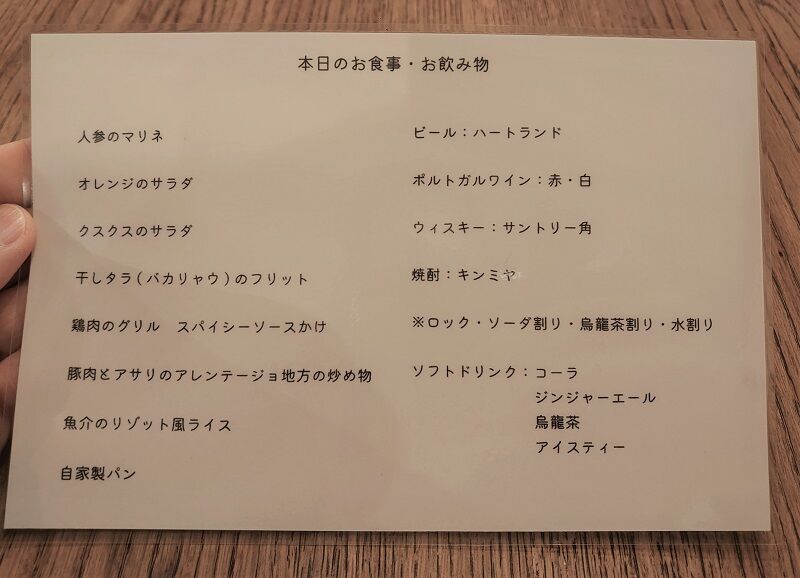 本日のお食事・お飲み物
人参のマリネ
オレンジのサラダ
クスクスのサラダ
干しタラ(バカリャウ)のフリット
鶏肉のグリル　スパイシーソースかけ
豚肉とアサリのアレンテージョ地方の炒め物
魚介のリゾット風ライス
自家製パン
ビール：ハートランド
ポルトガルワイン：赤・白
ウィスキー：サントリー角
焼酎：キンミヤ
※ロック・ソーダ割り・烏龍茶割り・水割り
ソフトドリンク：コーラ
ジンジャーエール
烏龍茶
アイスティー